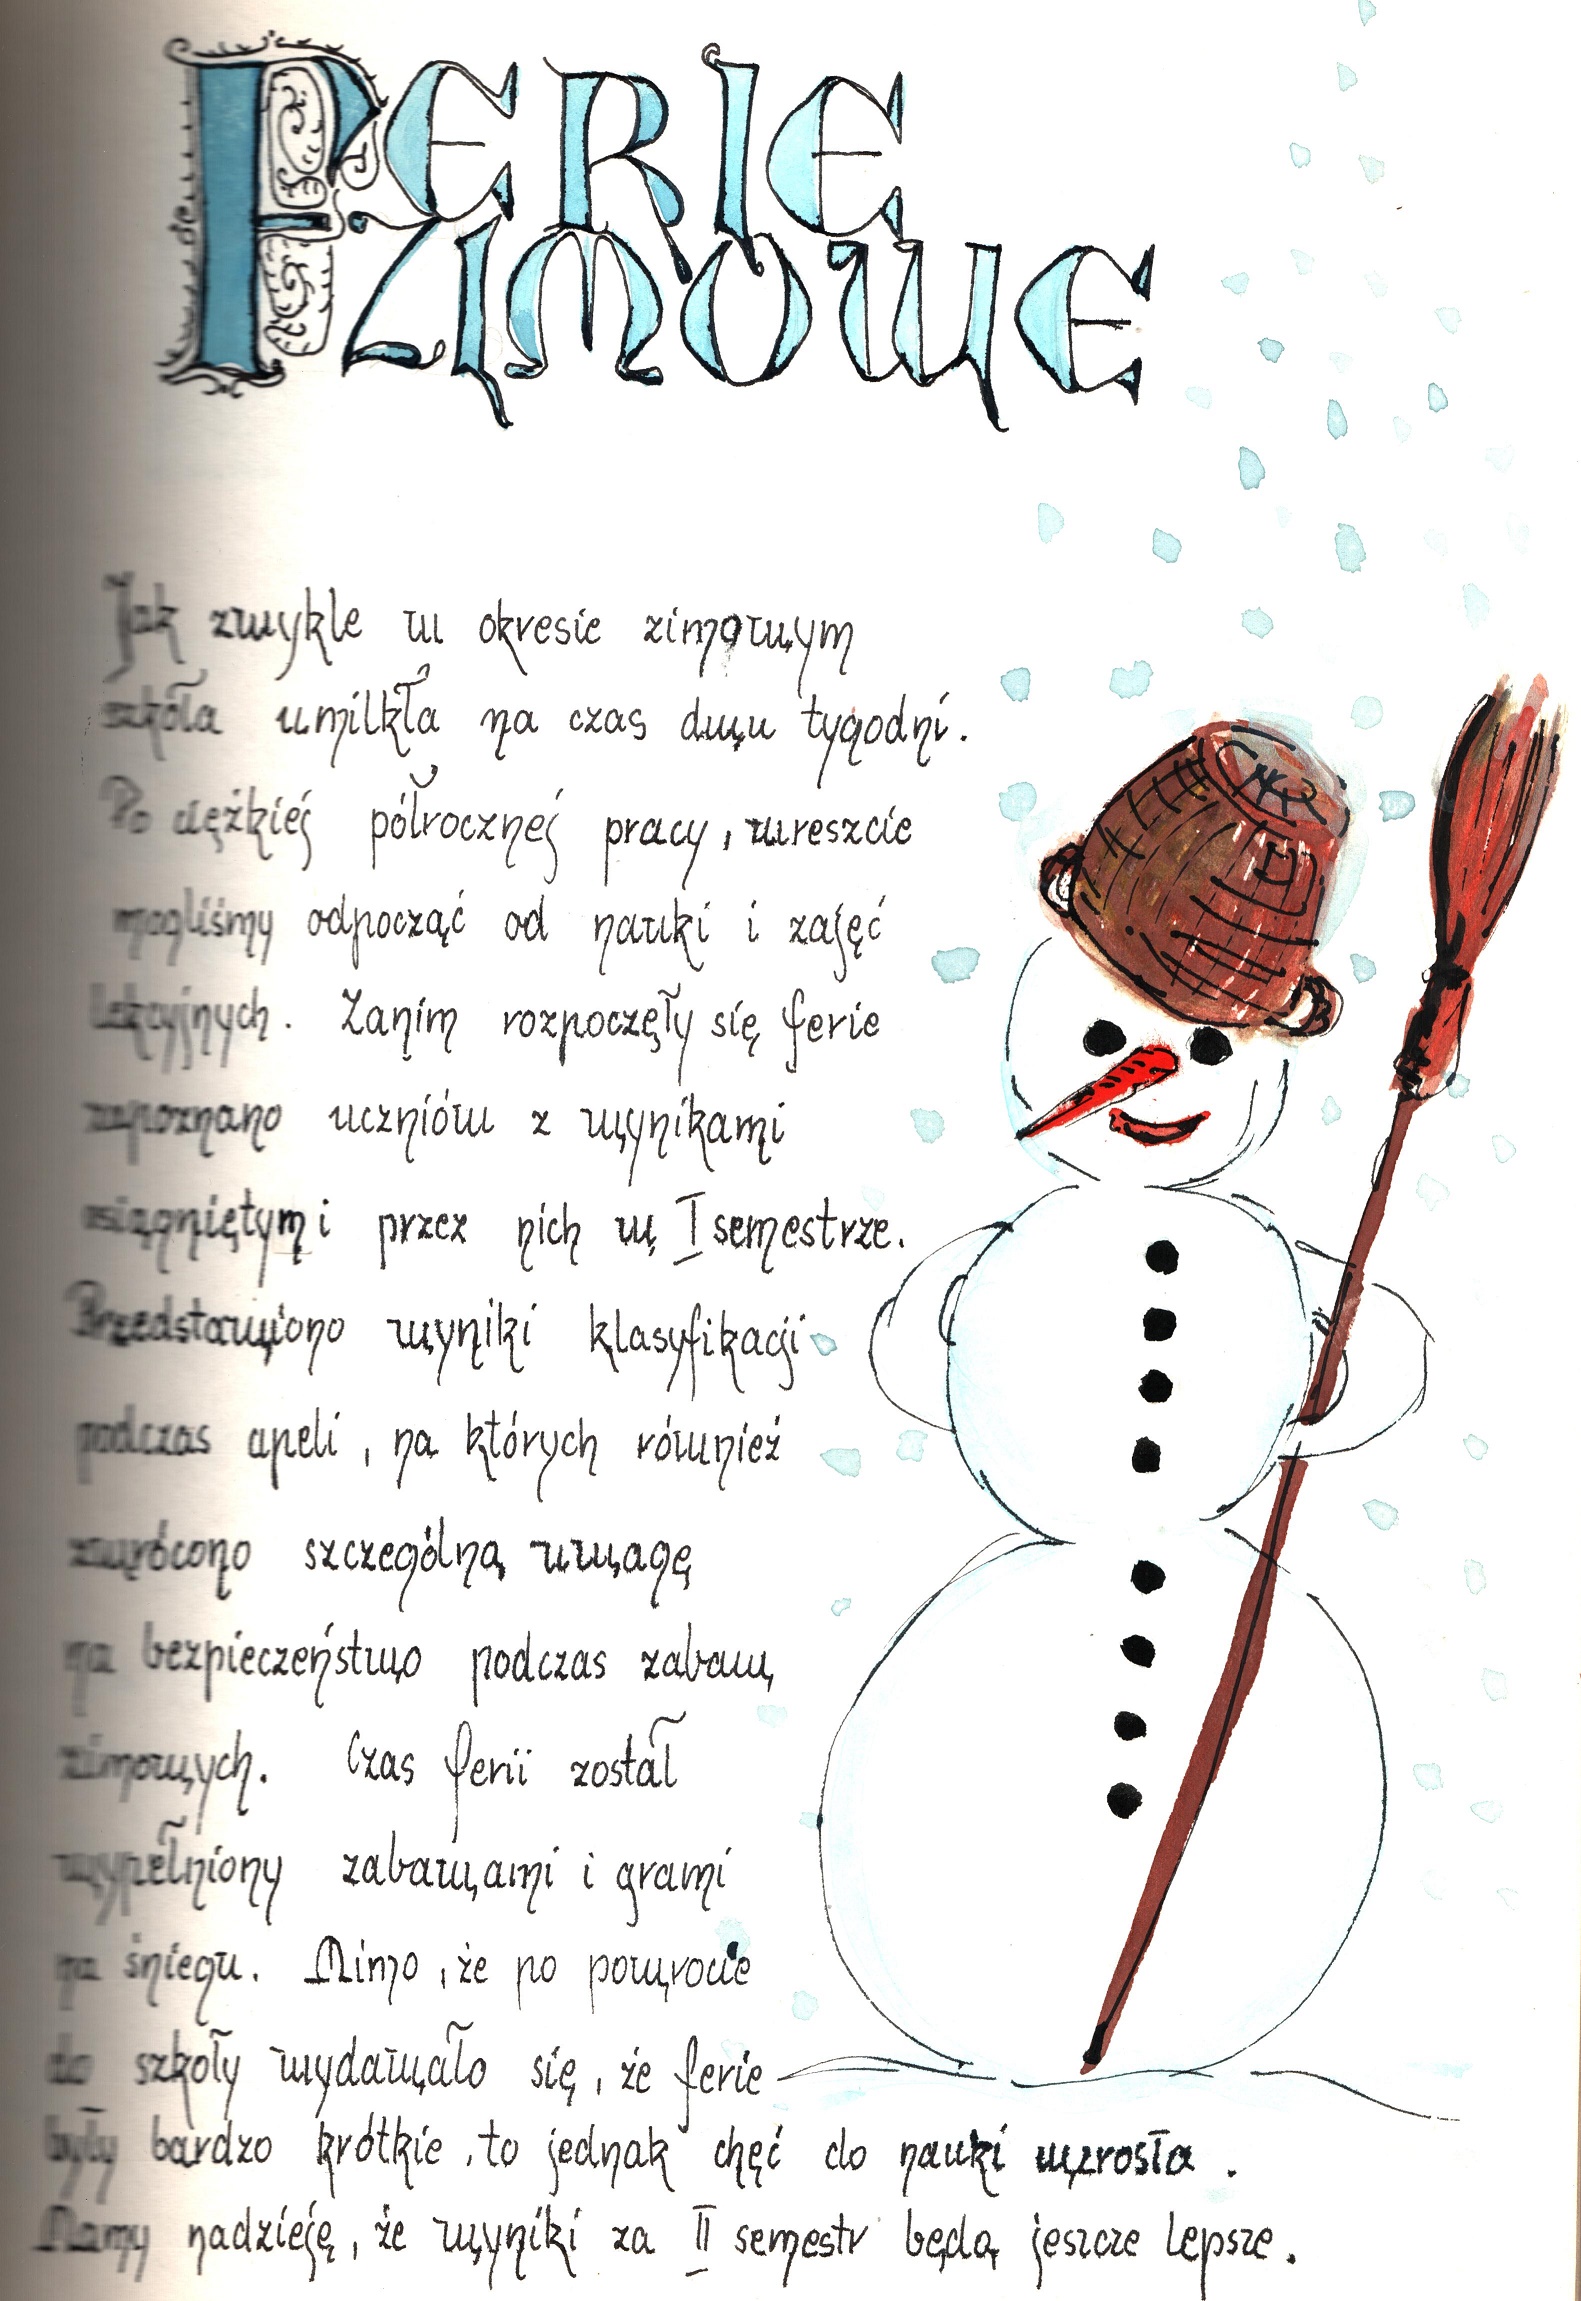 FERIE
ZIMOWE
Jak zwykle w okresie zimowym
szkoła umilkła na czas dwu tygodni.
Po ciężkiej półrocznej pracy, wreszcie
mogliśmy odpocząć od nauki i zajęć
lekcyjnych. Zanim rozpoczęły się ferie
zapoznano uczniów z wynikami
osiągniętymi przez nich w I semestrze.
Przedstawiono wyniki klasyfikacji
podczas apeli, na których również
zwrócono szczególną uwagę
na bezpieczeństwo podczas zabaw
zimowych. Czas ferii został
wypełniony zabawami i grami
na śniegu. Mimo, że po powrocie
do szkoły wydawało się, że ferie
były bardzo krótkie, to jednak chęć do nauki wzrosła.
Mamy nadzieję, że wyniki za II semestr będą jeszcze lepsze.